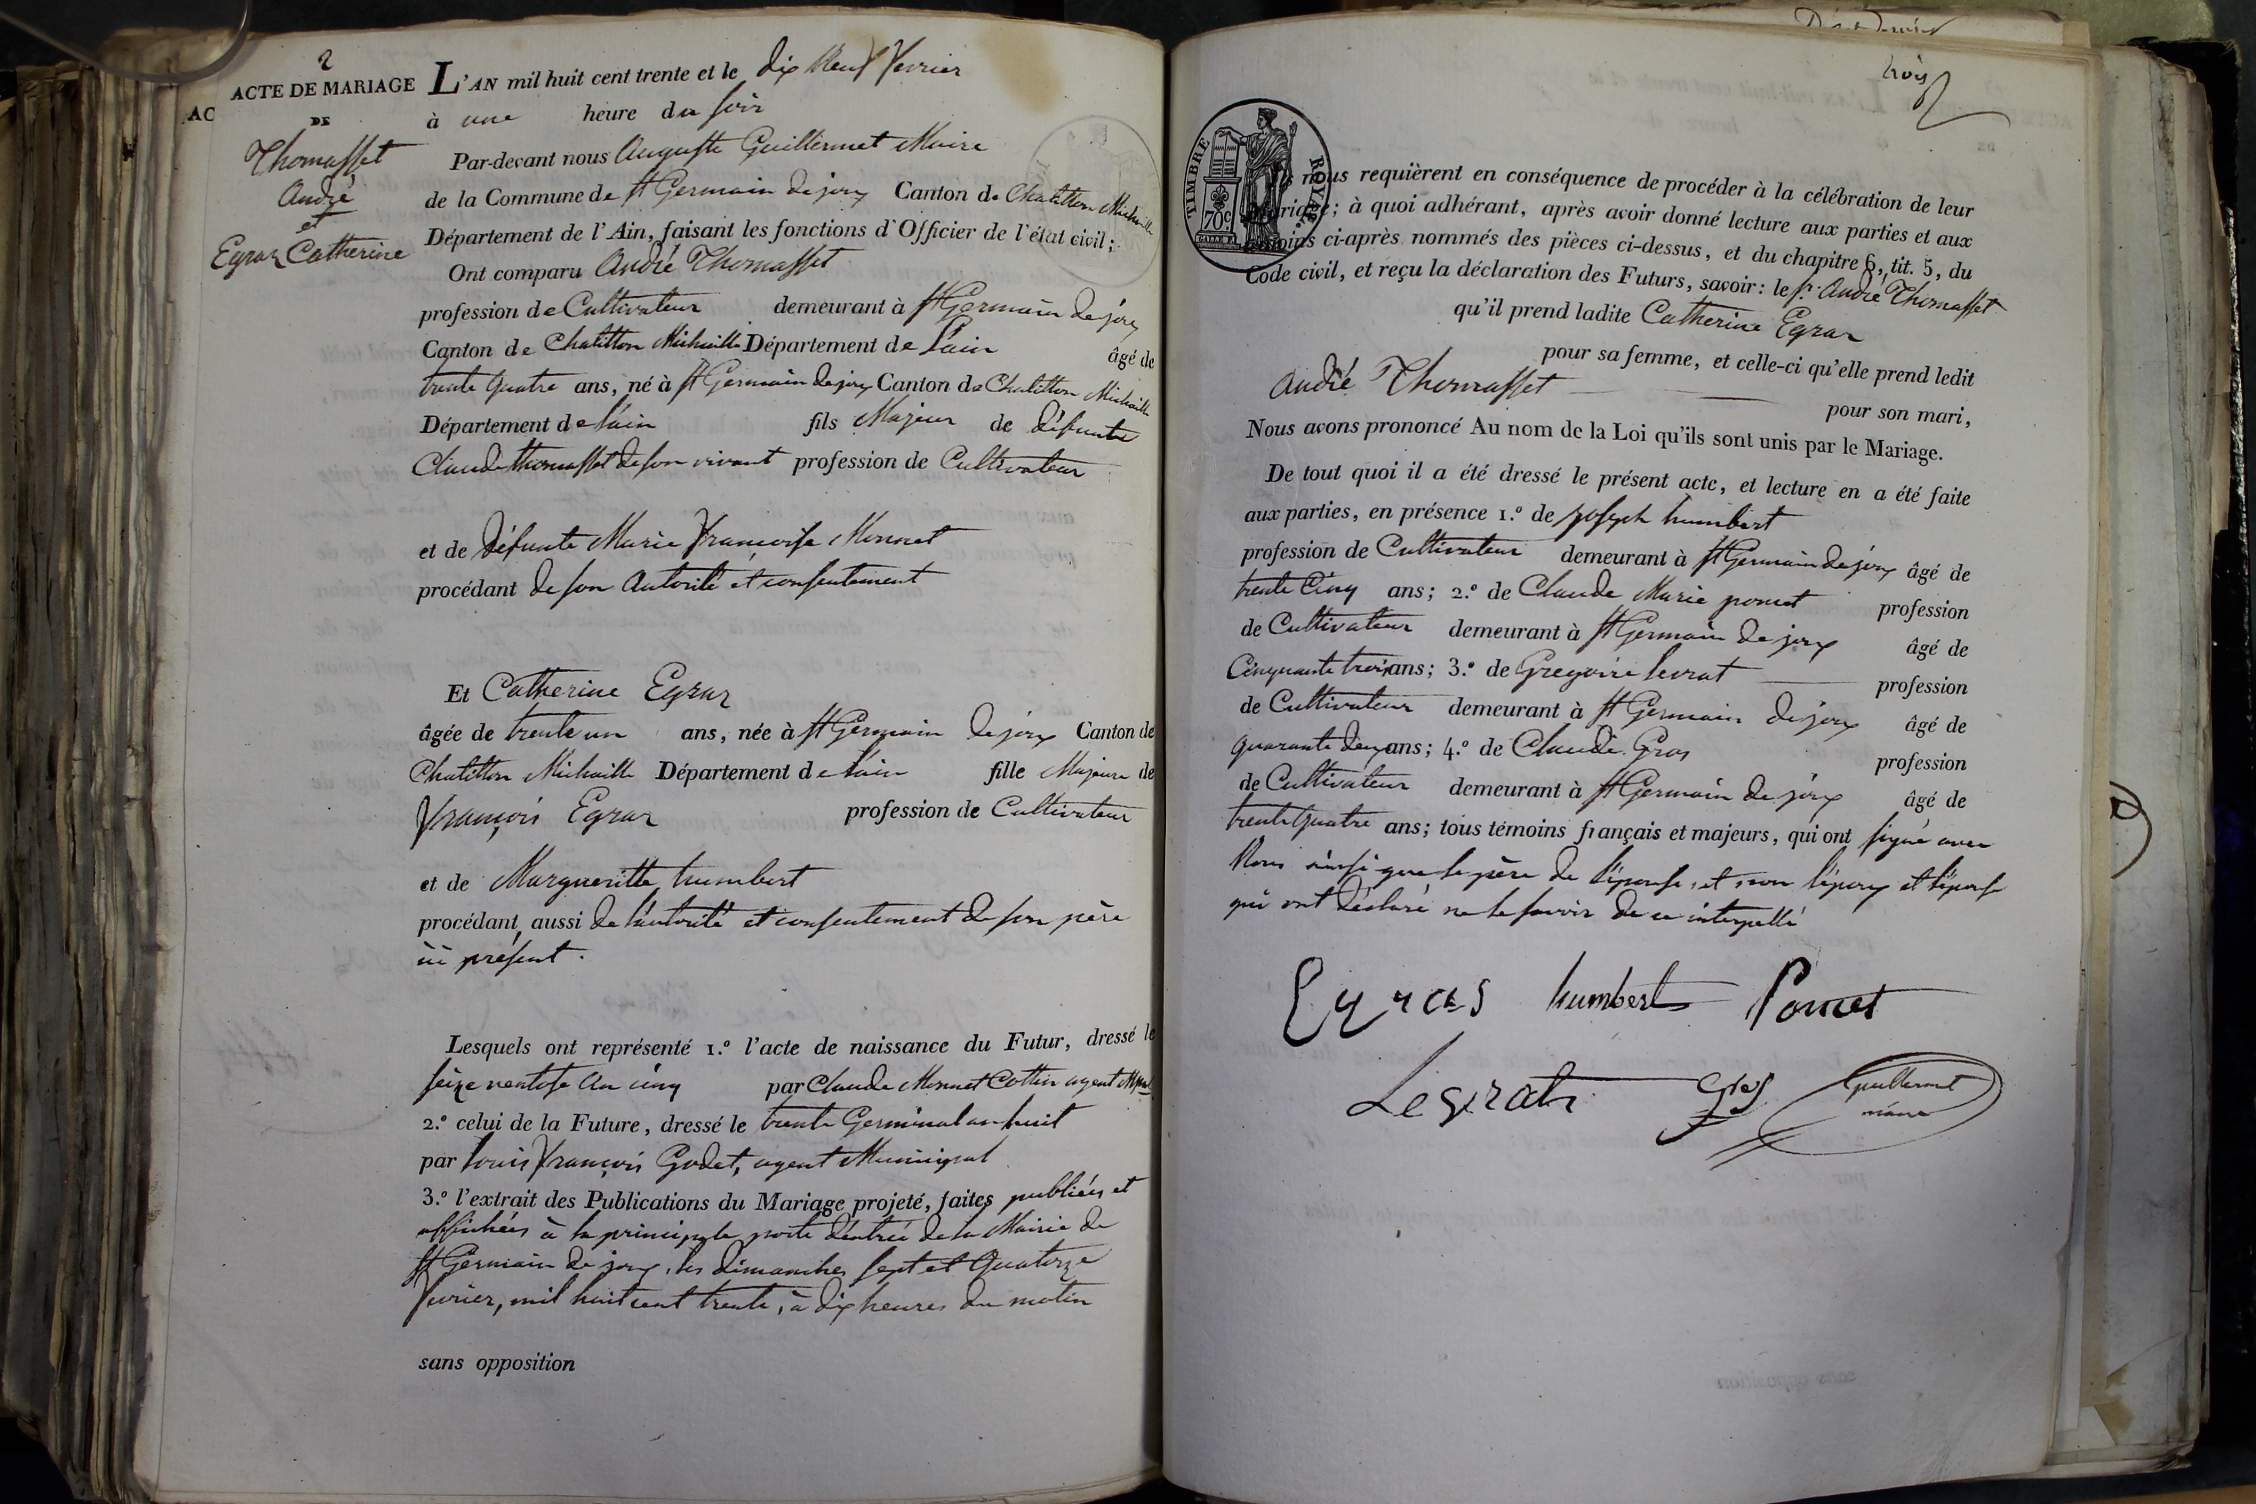 2
ACTE DE MARIAGE
AC
DE
Thomasset
André
et
Egraz Catherine
L'AN mil huit cent trente et le dix Neuf fevrier
à une heure du soir
Par-devant nous Auguste Guillermet Maire
de la Commune de St Germain de joux Canton de Chatillon Michaille
Département de l'Ain, faisant les fonctions d'Officier de l'état civil;
Ont comparu André Thomasset
profession de Cultivateur demeurant à St Germain de joux
Canton de Chatillon Michaille Département de L'ain âgé de
trente quatre ans, né à St Germain de joux Canton de Chatillon Michaille
Département de l'ain fils Majeur de défunte
Claude thomasset de son vivant profession de Cultivateur
et de défunte Marie françoise Monnet
procédant de son Autorité et consentement
Et Catherine Egraz
âgée de trente un ans, née à St Germain de joux Canton de
Chatillon Michaille Département de l'ain fille Majeure de
françois Egraz profession de Cultivateur
et de Margueritte humbert
procédant aussi de l'autorité et consentement de son père
ici présent.
Lesquels ont représenté 1.º l'acte de naissance du Futur, dressé le
seize ventose an cinq par Claude Monnet Cottin agent Mpal
2.º celui de la Future, dressé le trente Germinal an huit
par Louis françois Godet, agent Municipal
3.º l'extrait des Publications du Mariage projeté, faites publiées et
affichées à la principale porte d'entrée de la Mairie de
St Germain de joux, les dimanches sept et Quatorze
fevrier, mil huit cent trente, à dix heures du matin
sans opposition
trois
TIMBRE ROYAL
70 c.
nous requièrent en conséquence de procéder à la célébration de leur
Mariage; à quoi adhérant, après avoir donné lecture aux parties et aux
témoins ci-après nommés des pièces ci-dessus, et du chapitre 6, tit. 5, du
Code civil, et reçu la déclaration des Futurs, savoir: le Sr. André Thomasset
qu'il prend ladite Catherine Egraz
pour sa femme, et celle-ci qu'elle prend ledit
André Thomasset pour son mari,
Nous avons prononcé Au nom de la Loi qu'ils sont unis par le Mariage.
De tout quoi il a été dressé le présent acte, et lecture en a été faite
aux parties, en présence 1.º de joseph humbert
profession de Cultivateur demeurant à St Germain de joux âgé de
trente Cinq ans; 2.º de Claude Marie poncet profession
de Cultivateur demeurant à St Germain de joux âgé de
Cinquante trois ans; 3.º de Gregoire levrat profession
de Cultivateur demeurant à St Germain de joux âgé de
quarante deux ans; 4.º de Claude Gros profession
de Cultivateur demeurant à St Germain de joux âgé de
trente quatre ans; tous témoins français et majeurs, qui ont signé avec
Nous ainsi que le père de l'épouse, et non l'époux et l'épouse
qui ont déclaré ne le savoir de ce interpellé
Eyras humbert Poncet
Levrat Gros Guillermet
maire